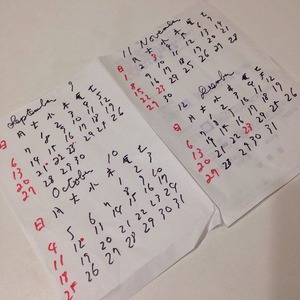 September 9
日 月 火 水 木 金 土
1 2 3 4 5
6 7 8 9 10 11 12
13 14 15 16 17 18 19
20 21 22 23 24 25 26
27 28 29 30
October 10
日 月 火 水 木 金 土
1 2 3
4 5 6 7 8 9 10
11 12 13 14 15 16 17
18 19 20 21 22 23 24
25 26 27 28 29 30 31
11 November
日 月 火 水 木 金 土
1 2 3 4 5 6 7
8 9 10 11 12 13 14
15 16 17 18 19 20 21
22 23 24 25 26 27 28
29 30
12 December
日 月 火 水 木 金 土
1 2 3 4 5
6 7 8 9 10 11 12
13 14 15 16 17 18 19
20 21 22 23 24 25 26
27 28 29 30 31